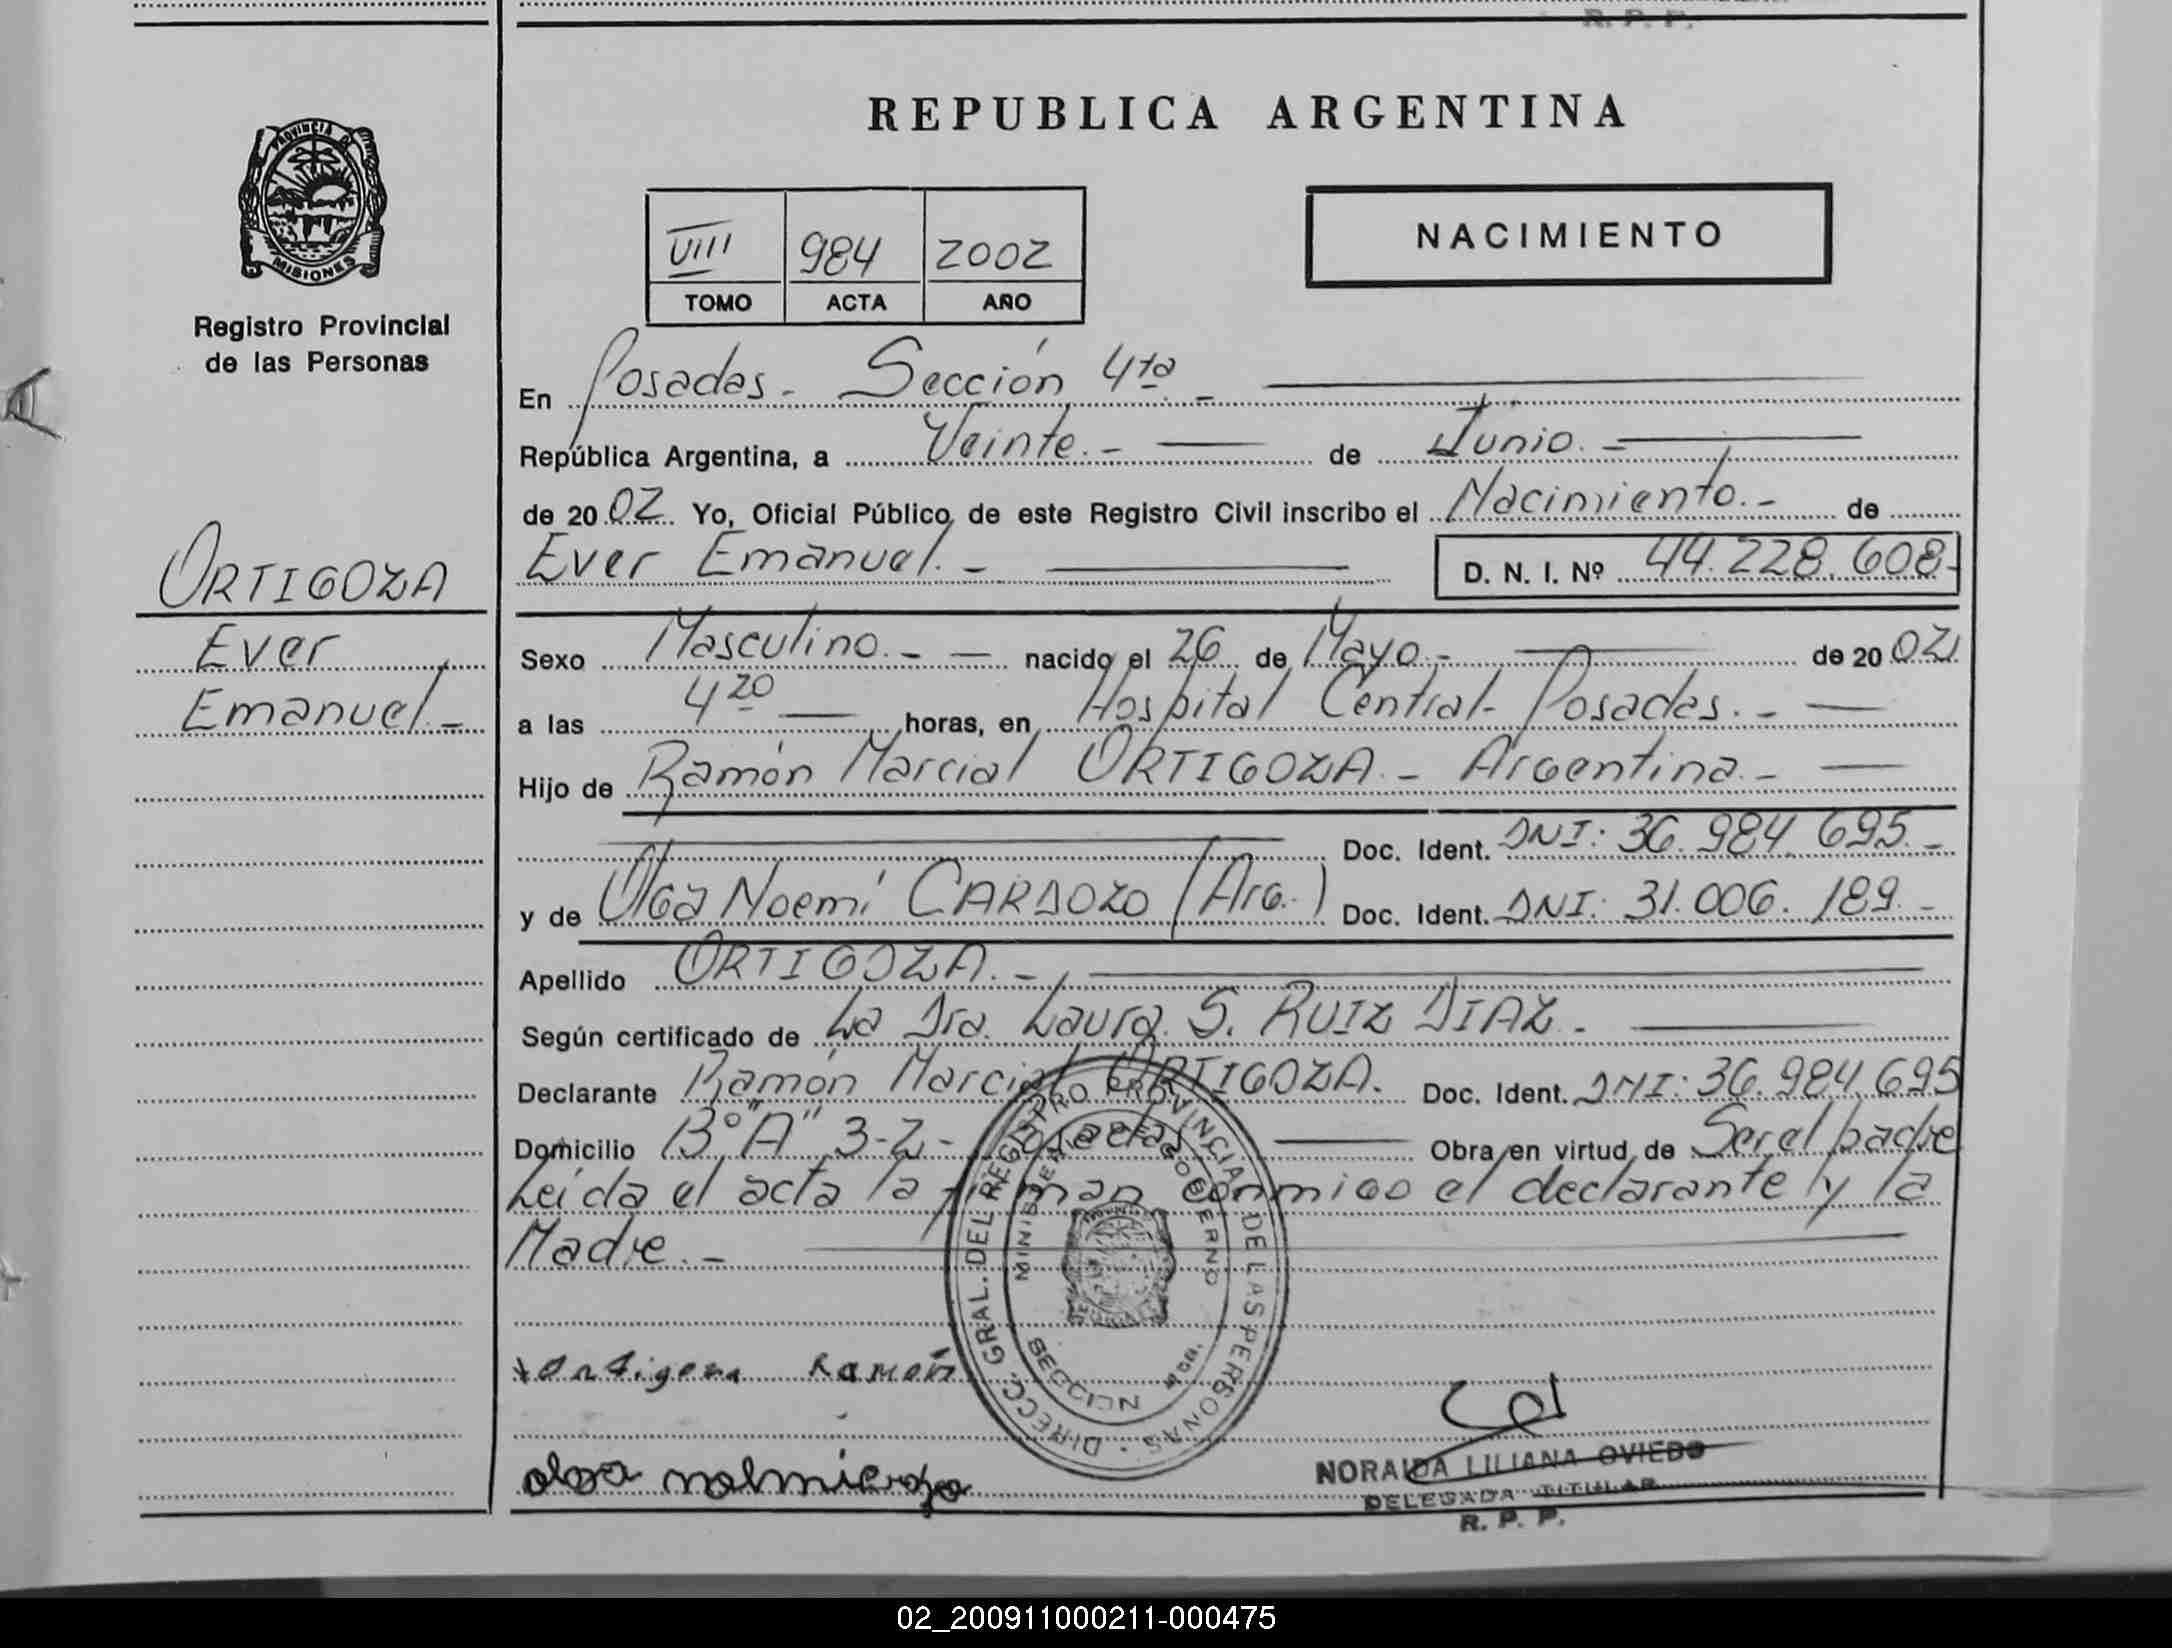 R. P. P.
REPUBLICA ARGENTINA
PROVINCIA DE
MISIONES
Registro Provincial
de las Personas
VIII 984 2002
TOMO ACTA AÑO
NACIMIENTO
En Posadas.- Sección 4ta.-
República Argentina, a Veinte.- de Junio.-
de 2002 Yo, Oficial Público, de este Registro Civil inscribo el Nacimiento.- de
Ever Emanuel.- D. N. I. Nº 44.228.608-
ORTIGOZA
Ever
Emanuel.-
Sexo Masculino.- - nacido el 26 de Mayo.- de 2002
a las 4 20 horas, en Hospital Central- Posadas.-
Hijo de Ramón Marcial ORTIGOZA.- Argentina.-
Doc. Ident. DNI: 36.984.695.-
y de Olga Noemí CARDOZO (Arg.) Doc. Ident. DNI: 31.006.189.-
Apellido ORTIGOZA.-
Según certificado de La Dra. Laura S. RUIZ DIAZ.-
Declarante Ramón Marcial ORTIGOZA. Doc. Ident. DNI: 36.984.695
Domicilio Bº "A" 3-2- Posadas Obra en virtud de Ser el padre
Leida el acta la firman conmigo el declarante y la
Madre.-
DIRECC. GRAL. DEL REGISTRO PROVINCIAL DE LAS PERSONAS
MINISTERIO DE GOBIERNO
SECCION 4ta.
Ortigoza Ramón
NORAIDA LILIANA OVIEDO
DELEGADA TITULAR
R. P. P.
02_200911000211-000475